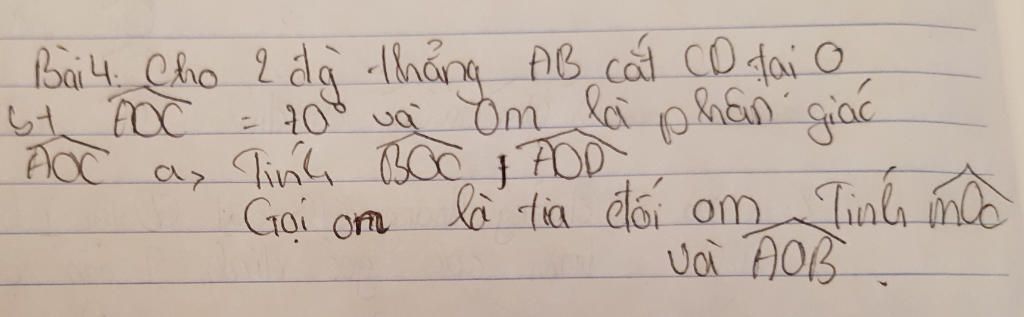 Bài 4. Cho 2 đg thẳng AB cắt CD tại O
st AOC = 70° và Om là phân giác
AOC a, Tính BOC, AOD
Gọi on là tia đối om. Tính mOc
và AOB.